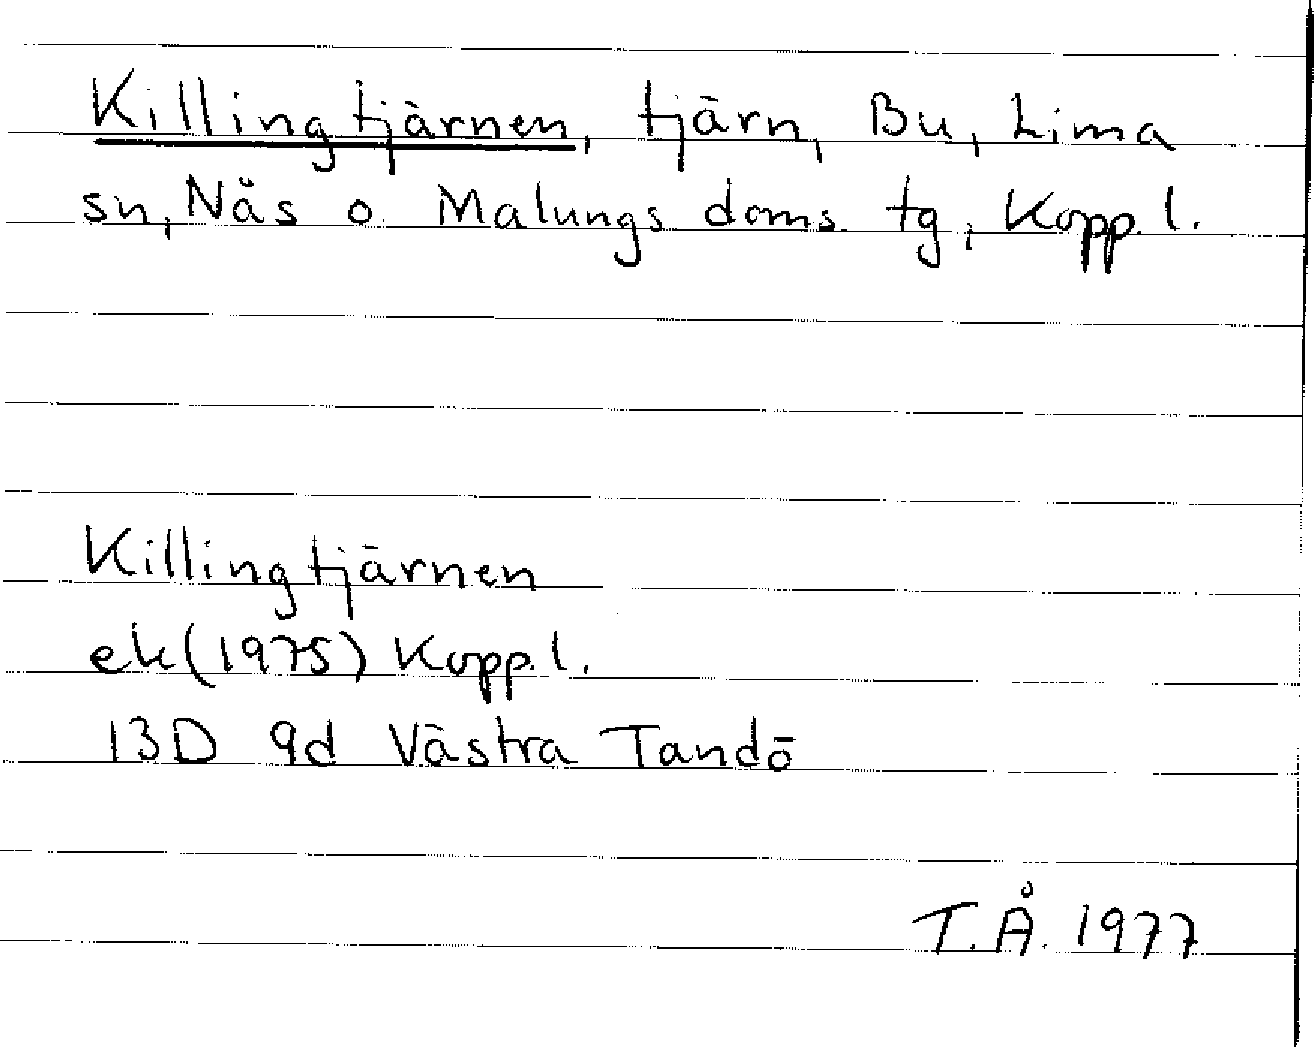 Killingtjärnen, tjärn, Bu, Lima
sn, Nås o. Malungs doms. tg, Kopp. l.
Killingtjärnen
ek (1975) Kopp. l.
13D 9d Västra Tandö
T.Å. 1977